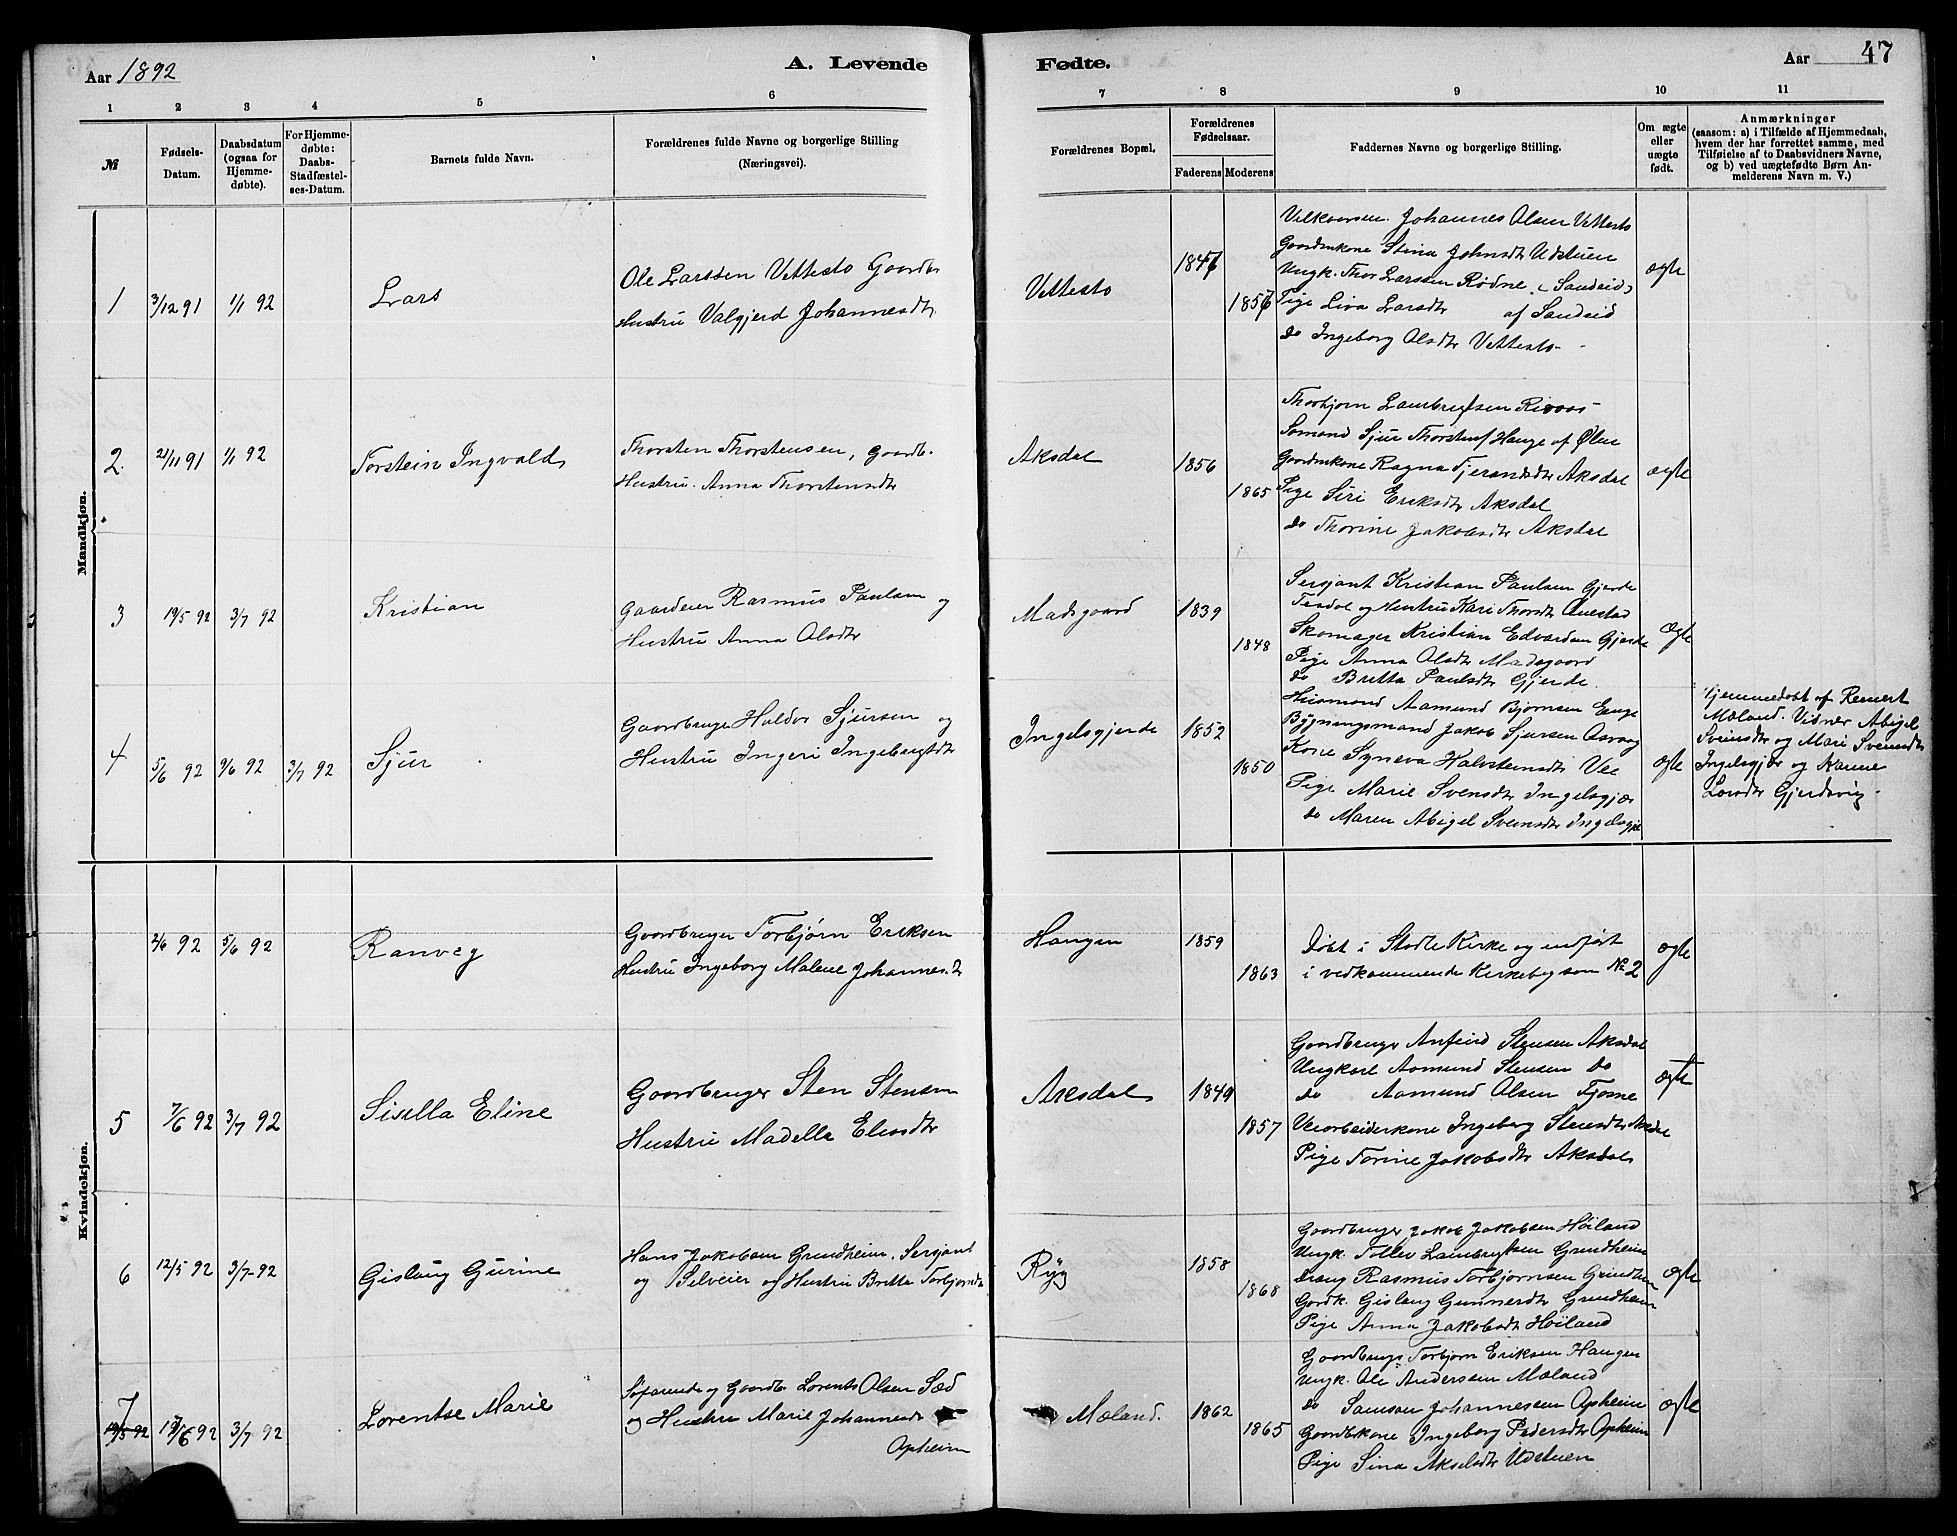 Aar 1892
A. Levende
Fødte.
Aar
47
1 2 3 4 5 6 7 8 9 10 11
№
Fødsels-
Datum.
Daabsdatum
(ogsaa for
Hjemme-
døbte).
For Hjemme-
døbte:
Daabs-
Stadfæstel-
ses-Datum.
Barnets fulde Navn.
Forældrenes fulde Navne og borgerlige Stilling
(Næringsvei).
Forældrenes Bopæl.
Forældrenes
Fødselsaar.
Faderens Moderens
Faddernes Navne og borgerlige Stilling.
Om ægte
eller
uægte
født.
Anmærkninger
(saasom: a) i Tilfælde af Hjemmedaab,
hvem der har forrettet samme, med
Tilføielse af to Daabsvidners Navne,
og b) ved uægtefødte Børn An-
melderens Navn m. V.)
Mandkjøn.
1
3/12 91
1/1 92
Lars
Ole Larssen Vettestø Gaardbr
Hustru Valgjerd Johannesdtr
Vettestø
1846
1857
Vilkaarsm. Johannes Olsen Vettestø
Gaardmkone Stina Johnsdt Udstuen
Ungk. Thor Larssen Rødne (Sandeid)
Pige Liva Larsdtr af Sandeid
do Ingeborg Olsdtr Vettestø
ægte
2.
21/11 91
1/1 92
Torstein Ingvald
Thorsten Thorstensen, Gaardb.
Hustru. Anna Thorstensdtr
Aksdal
1856
1865
Thorbjørn Lambregtsen
Sømand Sjur Thorstens Hauge af Ølen
Gaardmkone Ragna Tjerandsdtr Aksdal
Pige Siri Eriksdtr Aksdal
do Thorine Jakobsdtr Aksdal
ægte
3
19/5 92
3/7 92
Kristian
Gaardeier Rasmus Paulsen og
Hustru Anna Olsdtr
Madsgaard
1839
1848
Sersjant Kristian Paulsen Gjerde
og Hustru Kari Thorsdt
Skomager Kristian Edvardsen Gjerde
Pige Anna Olsdtr Madsgaard
do Britta Paulsdtr Gjerde
Ægte
4
5/6 92
9/6 92
3/7 92
Sjur
Gaardbruge Haldor Sjursen og
Hustru Ingeri Ingebregtdtr
Ingelsgjerde
1852
1850
Husmand Aamund Bjørnsen Enge
Bygningsmand Jakob Sjursen
Kone Syneva Halvstensdt Vee
Pige Marie Svensdtr Ingelsgjær
do Maren Abigel Svensdtr Ingelsgje
ægte
Hjemmedøbt af Reinert
Mæland. Vidner Abigel
Svensdtr og Mari Svensdtr
Ingelsgjær og Karine
Larsdtr Gjerdsvig
Kvindekjøn.
2/6 92
5/6 92
Ranveg
Gaardbruger Torbjørn Eriksen
Hustru Ingeborg Malene Johannesdt
Haugen
1859
1863
Døbt i Stødle Kirke og indført
i vedkommende Kirkebog som № 2
ægte
5
7/6 92
3/7 92
Sisella Eline
Gaardbruger Sten Stensen
Hustru Madella Eliasdtr
Aksdal
1849
1857
Gaardbruger Anfind Stensen Aksdal
Ungkarl Aamund Stensen do
do Aamund Olsen Tjorne
Veiarbeiderkone Ingeborg Stensdtr Aksdal
Pige Torine Jakobsdtr Aksdal
ægte
6
12/5 92
3/7 92
Gislaug Gurine
Hans Jakobsen Grindheim. Sersjand
og Selveier og Hustru Britta Torbjørnsdt
Ryg
1858
1868
Gaardbruger Jakob Jakobsen Høiland
Ungk. Tollev Lambregtsen Grindheim
Dreng Rasmus Torbjørnsen Grindheim
Gardk. Gislaug Gunnersdt Grindheim
Pige Anna Jakobsdt Høiland
ægte
7
19/5 92
19/6 92
3/7 92
Lorentse Marie
Søfarende og Gaardbr Lorents Olsen Sæd
og Hustru Marie Johannesdt
Opheim
Mæland.
1862
1865
Gaardbruge Torbjørn Eriksen Haugen
Ungk. Ole Anderssen Mæland
do Samson Johannessen Opheim
Gaardbkone Ingeborg Pedersdtr Opheim
Pige Sina Akselsdtr Udstuen
ægte